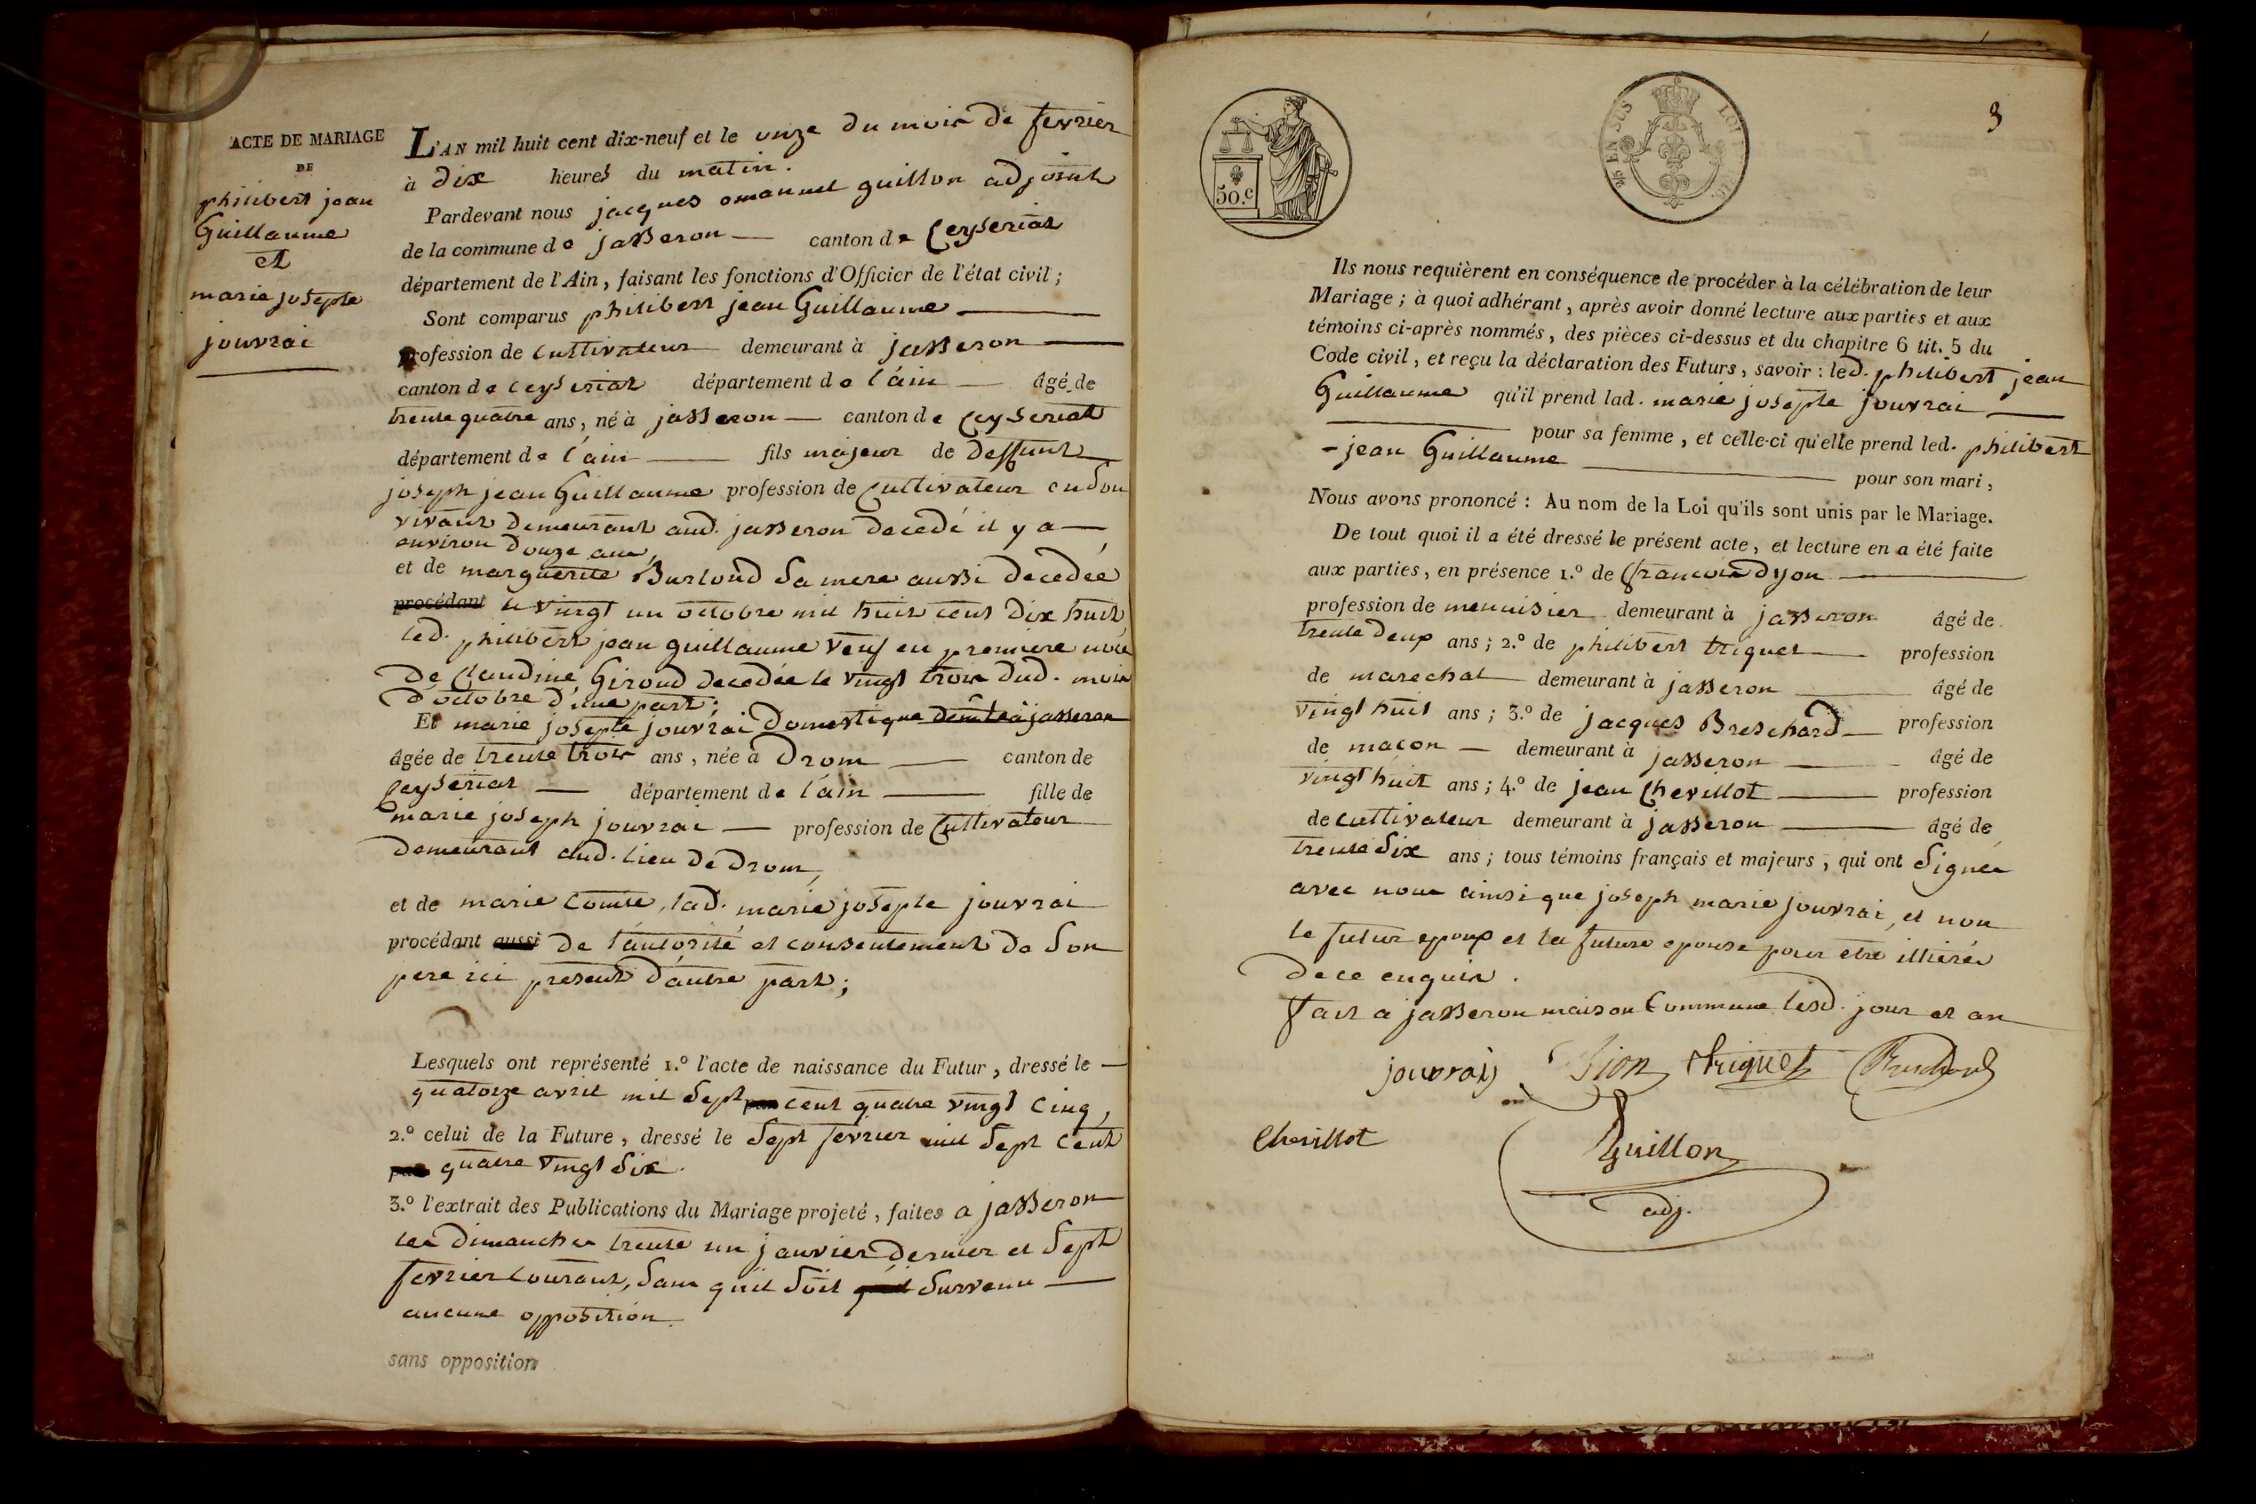 ACTE DE MARIAGE
DE
philibert jean
Guillaume
et
marie josephte
jouvrai
L'AN mil huit cent dix-neuf et le onze du mois de fevrier
à dix heures du matin.
Pardevant nous jacques emanuel guillon adjoint
de la commune de jasseron canton de Ceyseriat
département de l'Ain, faisant les fonctions d'Officier de l'état civil;
Sont comparus philibert jean Guillaume
profession de cultivateur demeurant à jasseron
canton de ceyseriat département de l'ain âgé de
trente quatre ans, né à jasseron canton de Ceyseriat
département de l'ain fils majeur de deffunt
joseph jean Guillaume profession de Cultivateur en son
vivant demeurant aud. jasseron decedé il y a
environ douze ans,
et de marguerite Burtoud sa mere aussi decedée
procédant le vingt un octobre mil huit cent dix huit,
led. philibert jean guillaume veuf en premiere noce
de Claudine Giroud decedée le vingt trois dud. mois
d'octobre d'une part;
Et marie josephte jouvrai domestique demte à jasseron
âgée de trente trois ans, née à Drom canton de
Ceyseriat département de l'ain fille de
marie joseph jouvrai profession de Cultivateur
demeurant aud. lieu de Drom,
et de marie Comte, lad. marie josephte jouvrai
procédant aussi de l'autorité et consentement de son
pere ici present d'autre part;
Lesquels ont représenté 1.º l'acte de naissance du Futur, dressé le
quatorze avril mil sept cent quatre vingt cinq,
2.º celui de la Future, dressé le sept fevrier mil sept cent
quatre vingt six.
3.º l'extrait des Publications du Mariage projeté, faites a jasseron
les dimanches trente un janvier dernier et sept
fevrier courant, sans qu'il soit survenu
aucune opposition.
sans opposition
50.c
3
Ils nous requièrent en conséquence de procéder à la célébration de leur
Mariage; à quoi adhérant, après avoir donné lecture aux parties et aux
témoins ci-après nommés, des pièces ci-dessus et du chapitre 6 tit. 5 du
Code civil, et reçu la déclaration des Futurs, savoir: led. philibert jean
Guillaume qu'il prend lad. marie josephte jouvrai
pour sa femme, et celle-ci qu'elle prend led. philibert
jean Guillaume pour son mari,
Nous avons prononcé: Au nom de la Loi qu'ils sont unis par le Mariage.
De tout quoi il a été dressé le présent acte, et lecture en a été faite
aux parties, en présence 1.º de francois dyon
profession de menuisier demeurant à jasseron âgé de
trente deux ans; 2.º de philibert triquet profession
de marechal demeurant à jasseron âgé de
vingt huit ans; 3.º de jacques Breschard profession
de macon demeurant à jasseron âgé de
vingt huit ans; 4.º de jean Chevillot profession
de cultivateur demeurant à jasseron âgé de
trente six ans; tous témoins français et majeurs, qui ont signés
avec nous ainsi que joseph marie jouvrai, et non
le futur epoux et la future epouse pour etre illitérés
de ce enquis.
fait a jasseron maison Commune lesd. jour et an
jouvray Dion triquet Breschard
Chevillot
Guillon
adj.